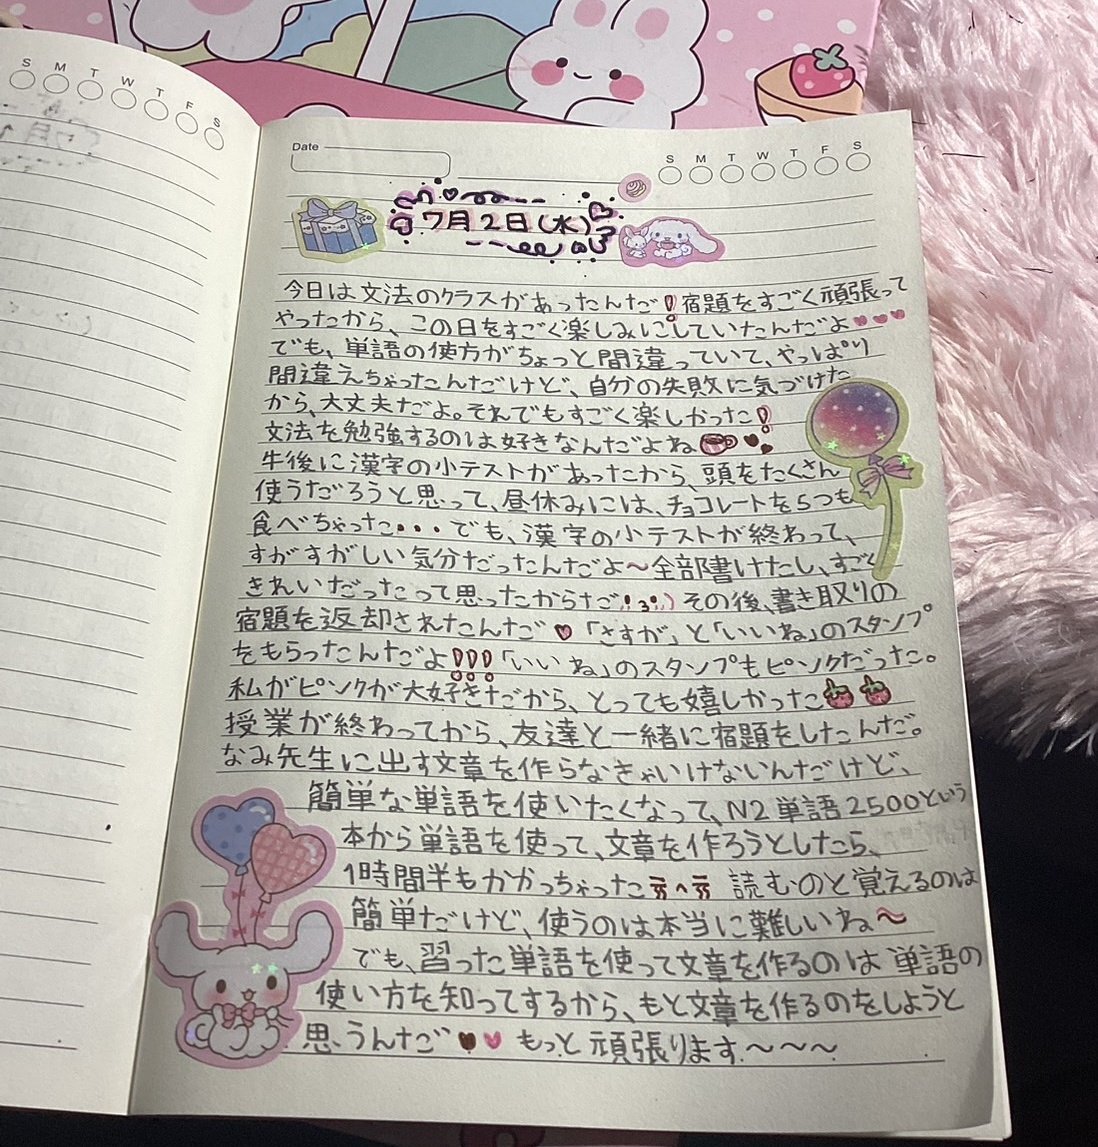 S M T W T F S
Date
S M T W T F S
7月2日(水)
今日は文法のクラスがあったんだ!宿題をすごく頑張って
やったから、この日をすごく楽しみにしていたんだよ♥♥♥
でも、単語の使方がちょっと間違っていて、やっぱり
間違えちゃったんだけど、自分の失敗に気づけた
から、大丈夫だよ。それでもすごく楽しかった!
文法を勉強するのは好きなんだよね
午後に漢字の小テストがあったから、頭をたくさん
使うだろうと思って、昼休みには、チョコレートを5つも
食べちゃった・・・でも、漢字の小テストが終わって、
すがすがしい気分だったんだよ〜全部書けたし、すごく
きれいだったって思ったからだ その後、書き取りの
宿題を返却されたんだ♥「さすが」と「いいね」のスタンプ
をもらったんだよ!!!「いいね」のスタンプもピンクだった。
私がピンクが大好きだから、とっても嬉しかった
授業が終わってから、友達と一緒に宿題をしたんだ。
なみ先生に出す文章を作らなきゃいけないんだけど、
簡単な単語を使いたくなって、N2単語2500という
本から単語を使って、文章を作ろうとしたら、
1時間半もかかっちゃったㅠ^ㅠ 読むのと覚えるのは
簡単だけど、使うのは本当に難しいね〜
でも、習った単語を使って文章を作るのは単語の
使い方を知ってするから、もと文章を作るのをしようと
思うんだ♥♥ もっと頑張ります〜〜〜